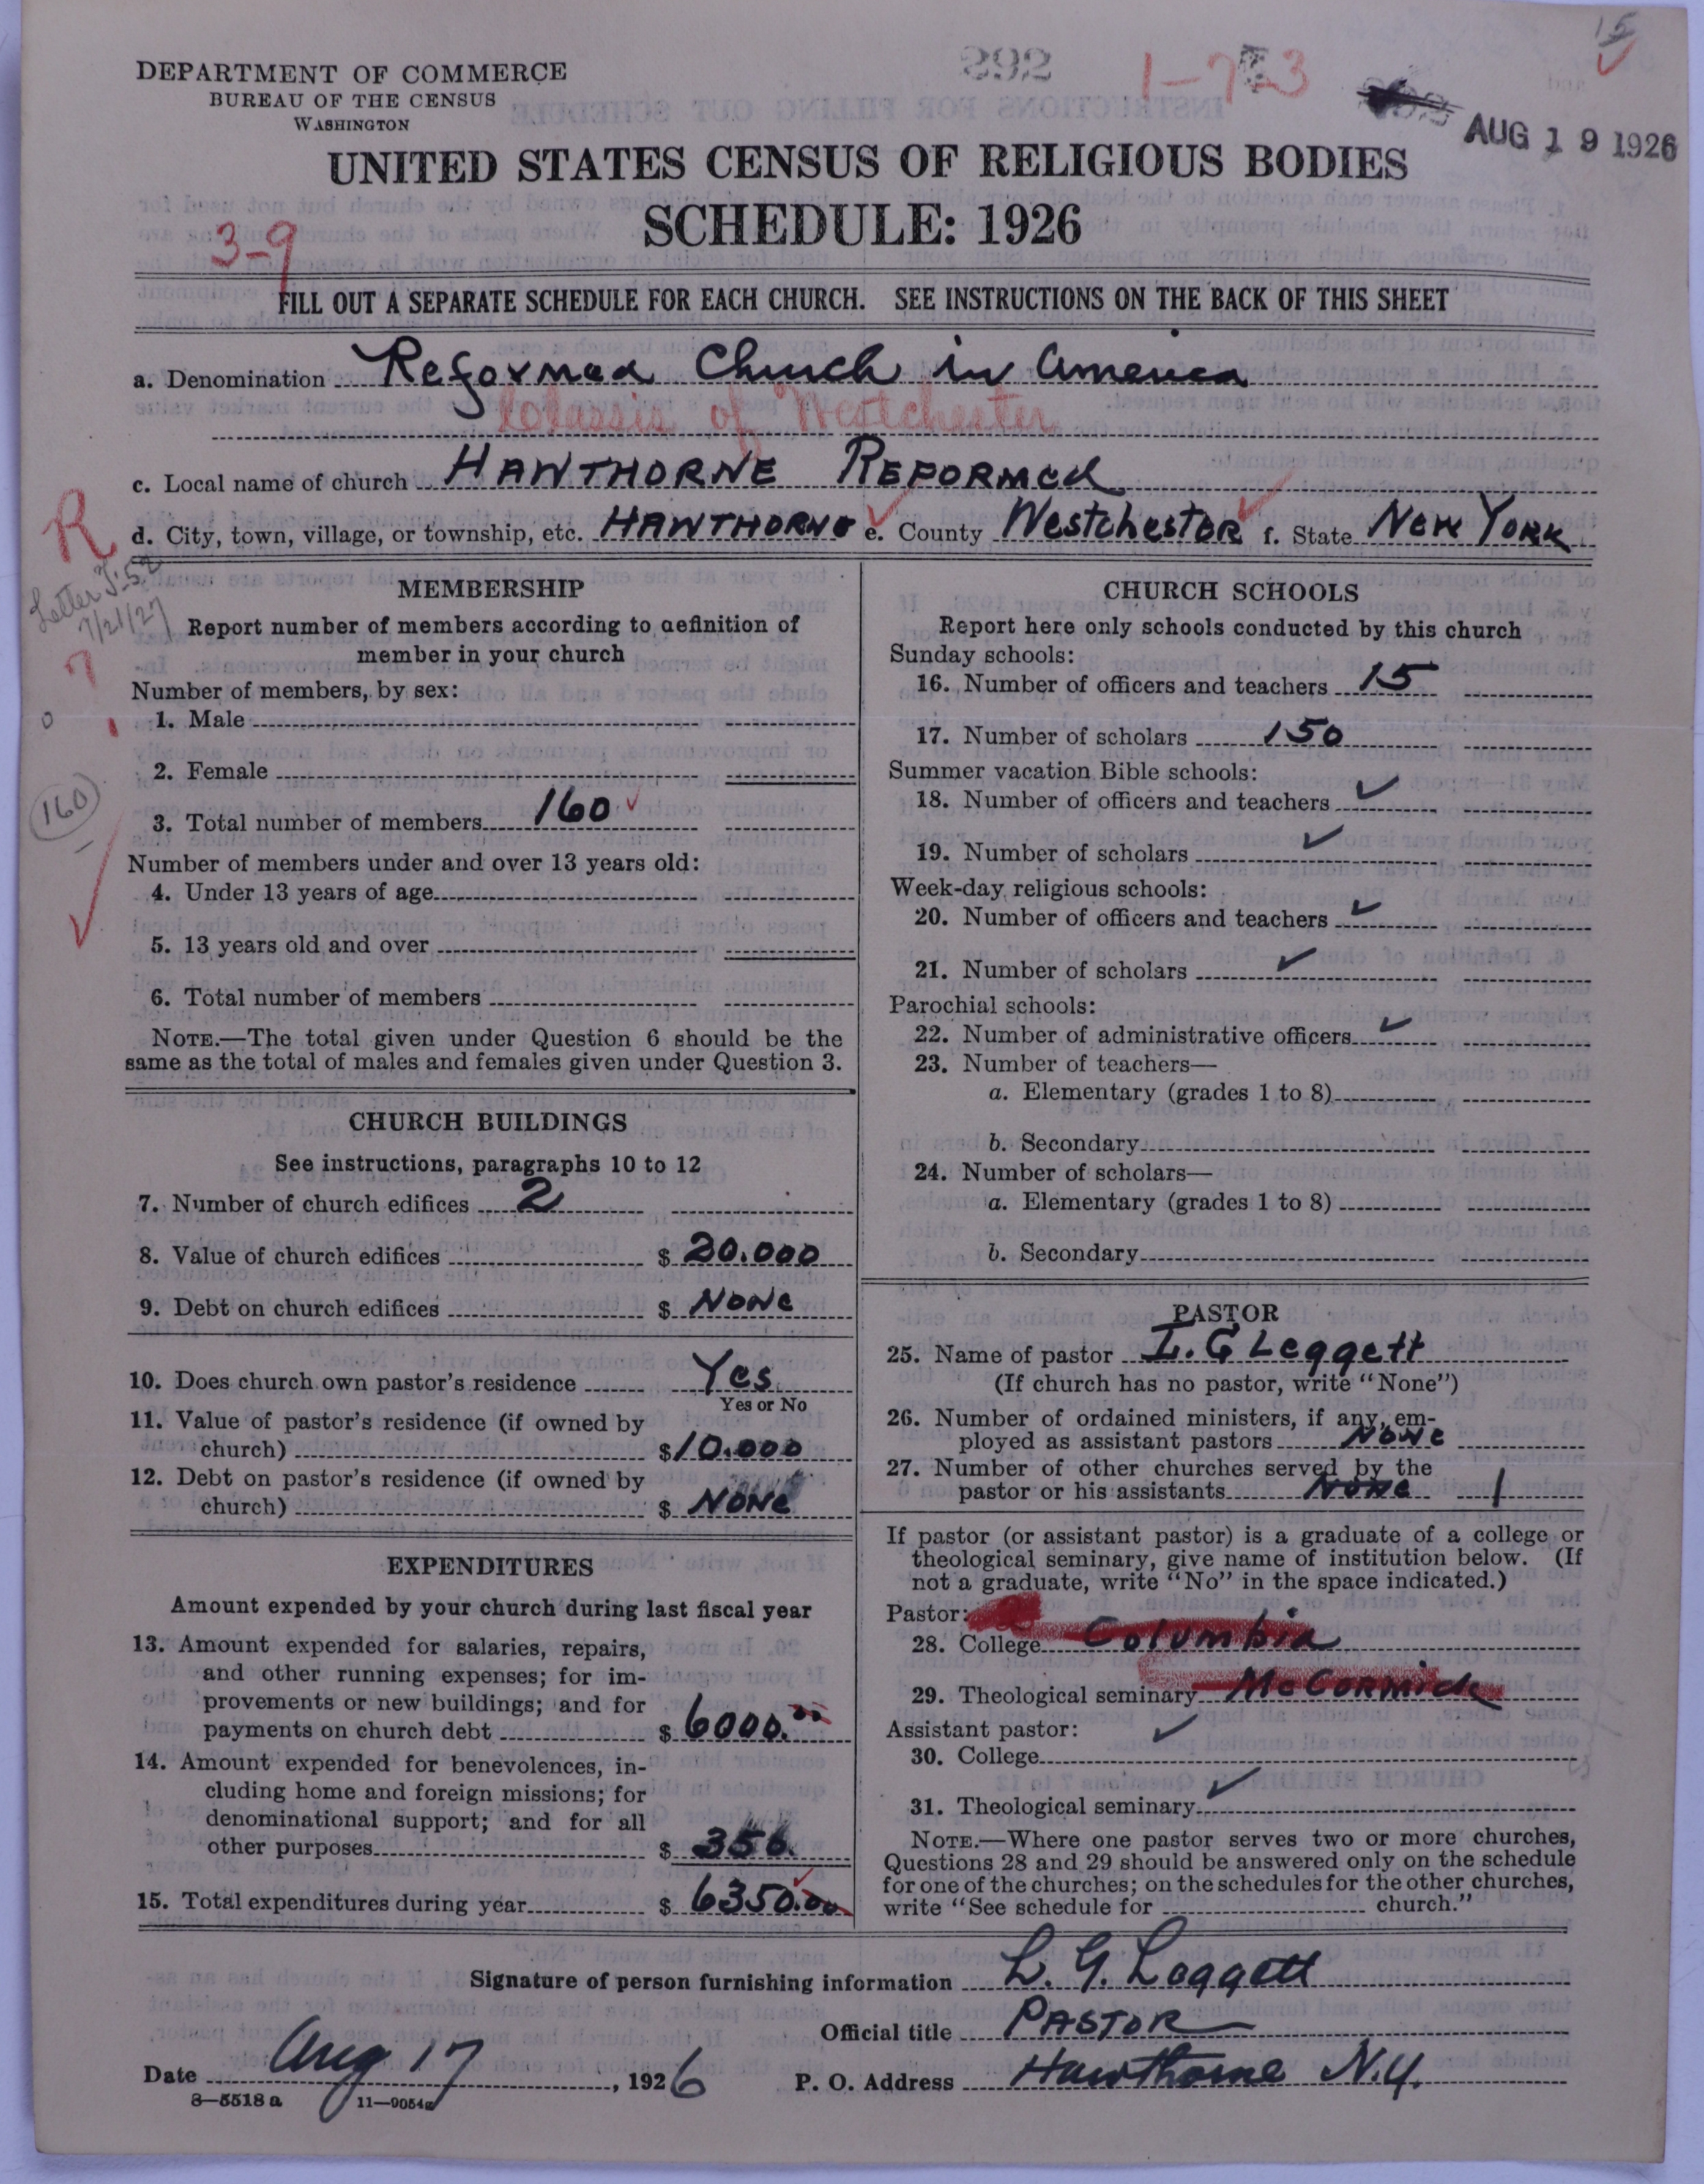 15
292
1-7-3
DEPARTMENT OF COMMERCE
BUREAU OF THE CENSUS
WASHINGTON
AUG 19 1926
UNITED STATES CENSUS OF RELIGIOUS BODIES
SCHEDULE: 1926
3-9
FILL OUT A SEPARATE SCHEDULE FOR EACH CHURCH. SEE INSTRUCTIONS ON THE BACK OF THIS SHEET
a. Denomination Reformed Church in America
Classis of Westchester
c. Local name of church HAWTHORNE REFORMED
d. City, town, village, or township, etc. HAWTHORNE e. County Westchester f. State NEW YORK
R
Letter J-52
7/21/27
7
MEMBERSHIP
Report number of members according to definition of
member in your church
Number of members, by sex:
1. Male
2. Female
3. Total number of members 160
160
Number of members under and over 13 years old:
4. Under 13 years of age
5. 13 years old and over
6. Total number of members
NOTE.—The total given under Question 6 should be the
same as the total of males and females given under Question 3.
CHURCH BUILDINGS
See instructions, paragraphs 10 to 12
7. Number of church edifices 2
8. Value of church edifices $ 20.000
9. Debt on church edifices $ NONE
10. Does church own pastor's residence Yes
Yes or No
11. Value of pastor's residence (if owned by
church) $ 10.000
12. Debt on pastor's residence (if owned by
church) $ NONE
EXPENDITURES
Amount expended by your church during last fiscal year
13. Amount expended for salaries, repairs,
and other running expenses; for im-
provements or new buildings; and for
payments on church debt $ 6000.00
14. Amount expended for benevolences, in-
cluding home and foreign missions; for
denominational support; and for all
other purposes $ 350.
15. Total expenditures during year $ 6350.00
CHURCH SCHOOLS
Report here only schools conducted by this church
Sunday schools:
16. Number of officers and teachers 15
17. Number of scholars 150
Summer vacation Bible schools:
18. Number of officers and teachers ✓
19. Number of scholars ✓
Week-day religious schools:
20. Number of officers and teachers ✓
21. Number of scholars ✓
Parochial schools:
22. Number of administrative officers ✓
23. Number of teachers—
a. Elementary (grades 1 to 8)
b. Secondary
24. Number of scholars—
a. Elementary (grades 1 to 8)
b. Secondary
PASTOR
25. Name of pastor L. G Leggett
(If church has no pastor, write "None")
26. Number of ordained ministers, if any, em-
ployed as assistant pastors NONE
27. Number of other churches served by the
pastor or his assistants NONE 1
If pastor (or assistant pastor) is a graduate of a college or
theological seminary, give name of institution below. (If
not a graduate, write "No" in the space indicated.)
Pastor:
28. College Columbia
29. Theological seminary McCormick
Assistant pastor: ✓
30. College
31. Theological seminary ✓
NOTE.—Where one pastor serves two or more churches,
Questions 28 and 29 should be answered only on the schedule
for one of the churches; on the schedules for the other churches,
write "See schedule for church."
Signature of person furnishing information L. G. Leggett
Official title PASTOR
Date Aug 17, 1926 P. O. Address Hawthorne N.Y.
8—5518 a 11—9054a